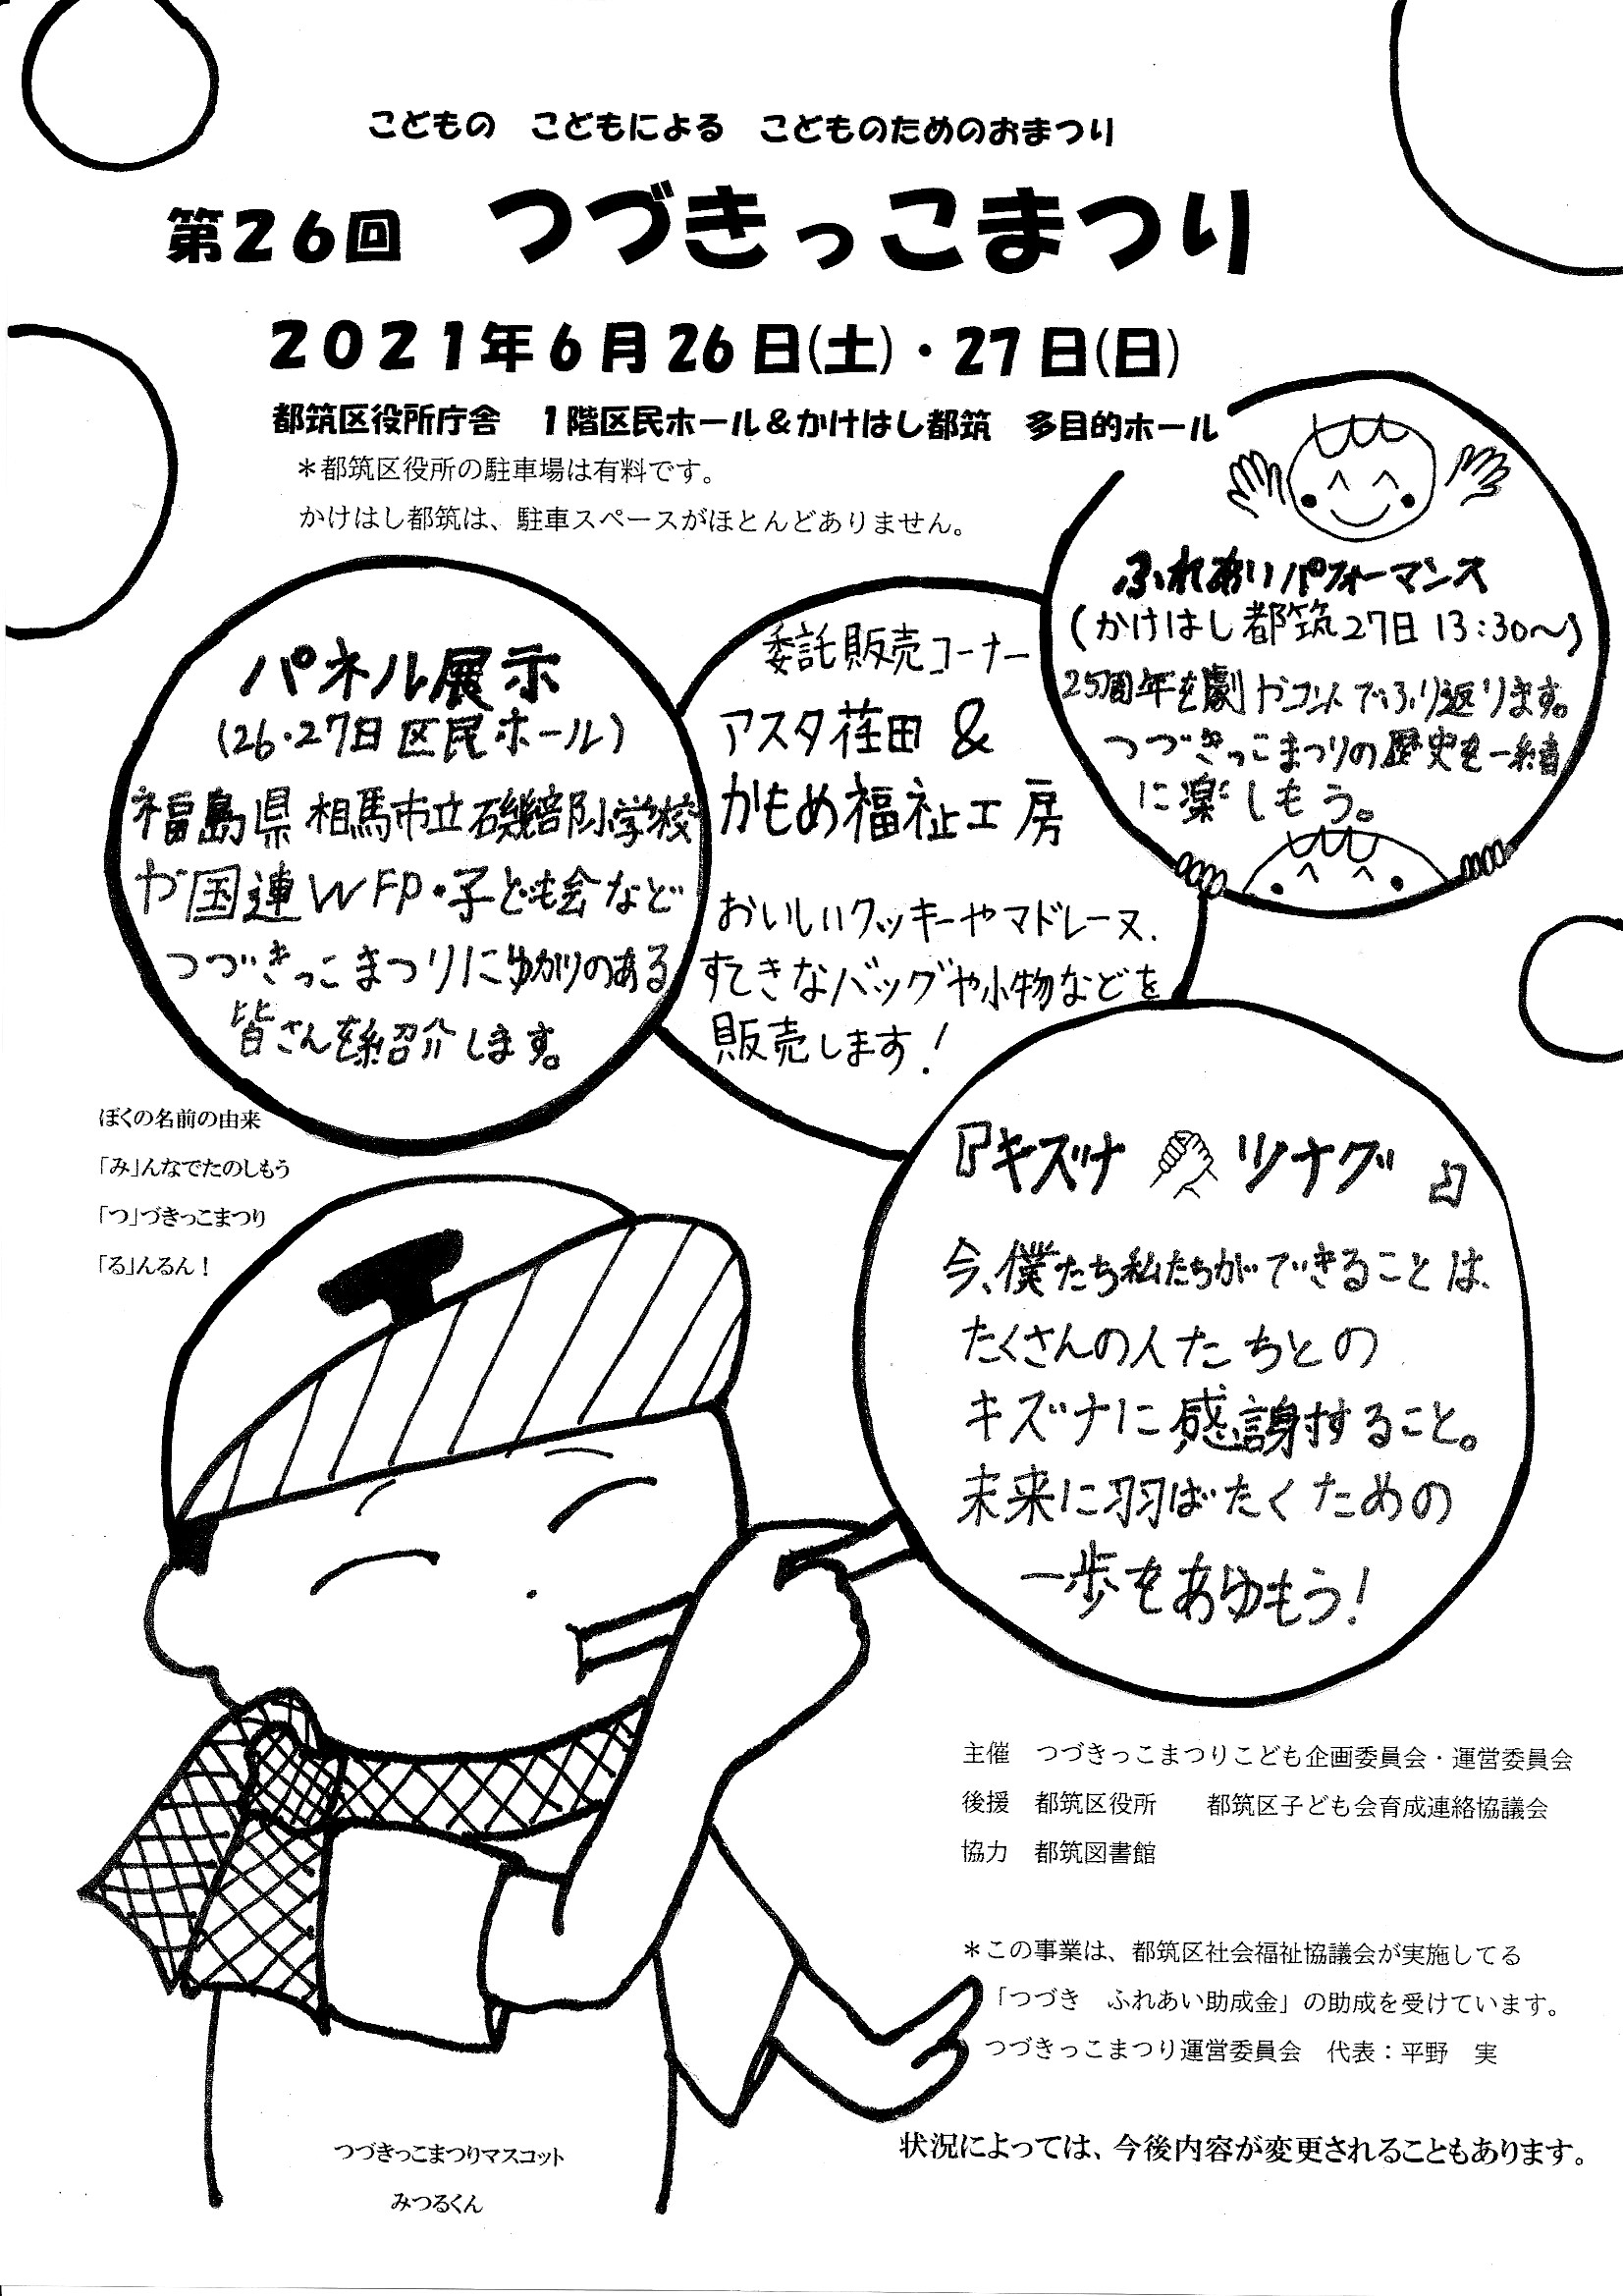 こどもの　こどもによる　こどものためのおまつり
第26回　つづきっこまつり
2021年6月26日(土)・27日(日)
都筑区役所庁舎　1階区民ホール＆かけはし都筑　多目的ホール
＊都筑区役所の駐車場は有料です。
かけはし都筑は、駐車スペースがほとんどありません。
パネル展示
(26・27日 区民ホール)
福島県 相馬市立磯部小学校
や国連WFP・子ども会など
つづきっこまつりにゆかりのある
皆さんを紹介します。
委託販売コーナー
アスタ荏田 &
かもめ福祉工房
おいしいクッキーやマドレーヌ、
すてきなバッグや小物などを
販売します！
ふれあいパフォーマンス
(かけはし都筑27日 13:30〜)
25周年を劇やコントでふり返ります。
つづきっこまつりの歴史を一緒
に楽しもう。
『キズナ ツナグ』
今、僕たち私たちができることは、
たくさんの人たちとの
キズナに感謝すること。
未来に羽ばたくための
一歩をあゆもう！
ぼくの名前の由来
「み」んなでたのしもう
「つ」づきっこまつり
「る」んるん！
主催　つづきっこまつりこども企画委員会・運営委員会
後援　都筑区役所　　都筑区子ども会育成連絡協議会
協力　都筑図書館
＊この事業は、都筑区社会福祉協議会が実施してる
「つづき　ふれあい助成金」の助成を受けています。
つづきっこまつり運営委員会　代表：平野　実
状況によっては、今後内容が変更されることもあります。
つづきっこまつりマスコット
みつるくん